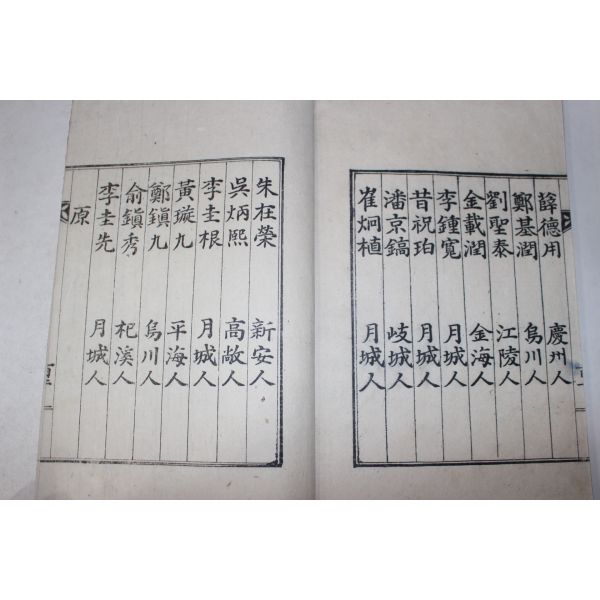 薛德用 慶州人
鄭基潤 烏川人
劉聖泰 江陵人
金載潤 金海人
李鍾寬 月城人
昔祝珀 月城人
潘京鎬 岐城人
崔炯植 月城人
朱枉榮 新安人
吳炳熙 高敞人
李圭根 月城人
黃璇九 平海人
鄭鎭九 烏川人
俞鎭秀 杞溪人
李圭先 月城人
原